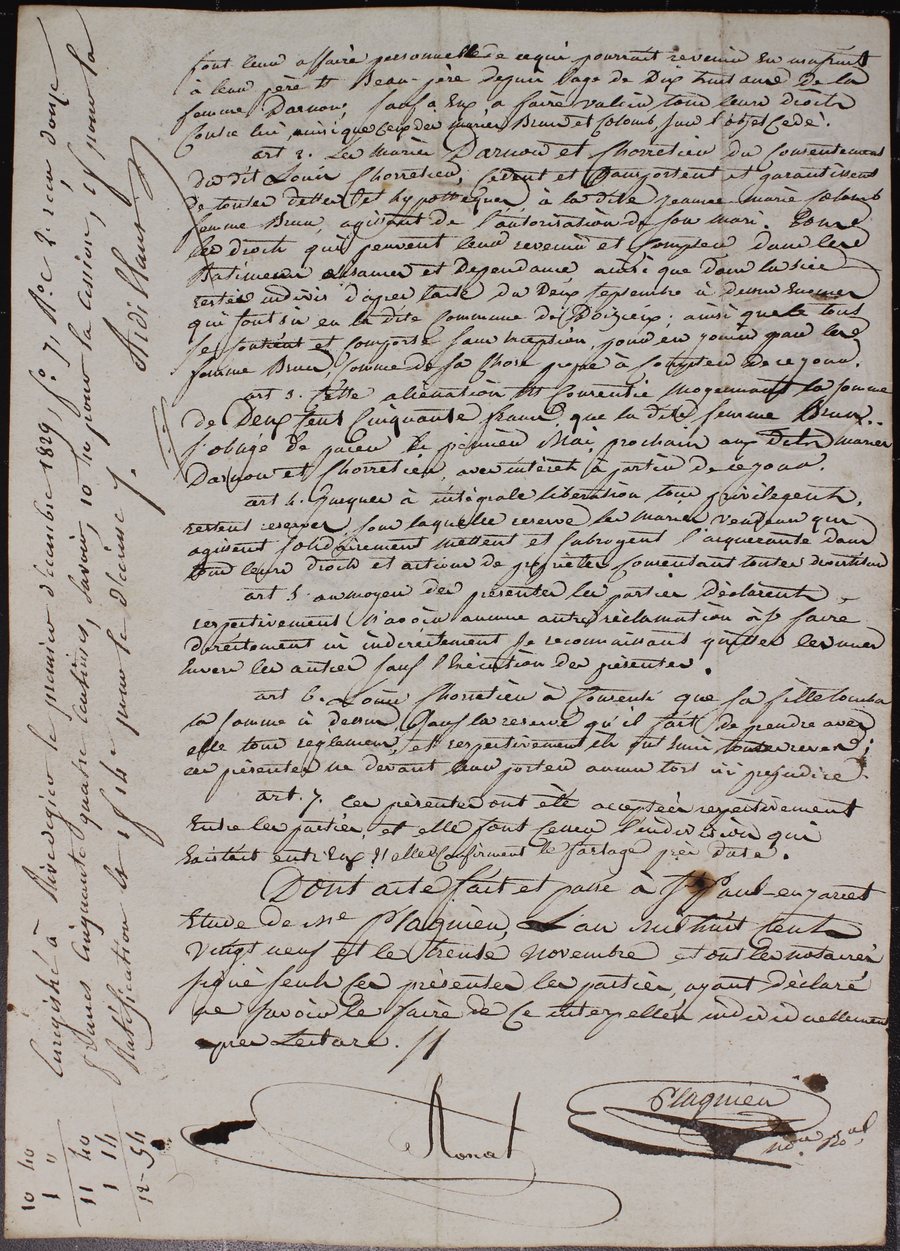 font leur affaire personnelle de ce qui pourrait revenir en usufruit
à leur père et Beau-père depuis l'age de Dix huit ans de la
femme Darnon, sauf a Eux a faire valoir tous leurs droits
Contre lui ainsi que ceux des mariés Brun et Colomb, sur l'objet Cedé.
art 2. Les mariés Darnon et Chorretien du Consentement
du dit Louis Chorretien, Cedent et transportent et garantissent
de toutes dettes et hypotteques à la dite jeanne marie Colomb
femme Brun, agissant de l'autorisation de son mari. Tous
les droits qui peuvent leur revenir et Compter dans les
Batiments aisances et Dependances ainsi que dans la
restés indivis d'après l'acte du Deux Septembre à dessus
qui sont sis en la dite Commune de Doizieu; ainsi que le tous
se Contient et comporte sans exception, pour en jouir par la
femme Brun, Comme de sa Chose propre à Compter de ce jour.
art 3. Cette aliénation est Consentie moyennant la somme
de Deux Cent Cinquante francs, que la dite femme Brun
s'oblige de payer le premier Mai prochain aux Dits mariés
Darnon et Chorretien, avec intérêt à partir de ce jour.
art 4. jusques à intégrale libération tous privileges
restent reservés, sous laquelle reserve les mariés vendeurs qui
agissent solidairement mettent et subrogent l'acquerante dans
tous leurs droits et actions de propriété Consentant toutes
art 5 au moyen des présentes les parties déclarent
respectivement n'avoir aucune autre réclamation à se faire
directement ni indirectement se reconnaissant quittes les uns
Envers les autres sauf l'Exécution des présentes.
art 6. Louis Chorretien à Consenti que sa fille
la somme ci dessus, sous la reserve qu'il fait de prendre avec
elle tous reglement, et respectivement toutes reserves;
ces présentes ne devant leur porter aucun tort ni prejudice.
art. 7. Ces présentes ont été acceptées respectivement
Entre les parties, et elle font Cesser l'indivision qui
Existait entr'Eux et elles Confirment le partage pré Daté.
Dont acte fait et passé à St Paul-en-jarret
Etude de Me Plagnieu, L'an mil huit Cent
Vingt neuf et le trense novembre et ont les notaires
signé seuls Ces présentes les parties, ayant déclaré
ne savoir le faire de Ce interpellés individuellement
après Lecture. //
Ronat
Plagnieu
nore Roal
Enregistré à Rivedegier le premier décembre 1829, fo 7, Ro c 2. reçu douze
francs cinquante quatre centimes, savoir, 10 40 pour la cession, 1 f pour la
Ratification et 1 f 14 c pour le décime /.
10 40
1 "
11 40
1 14
12-54